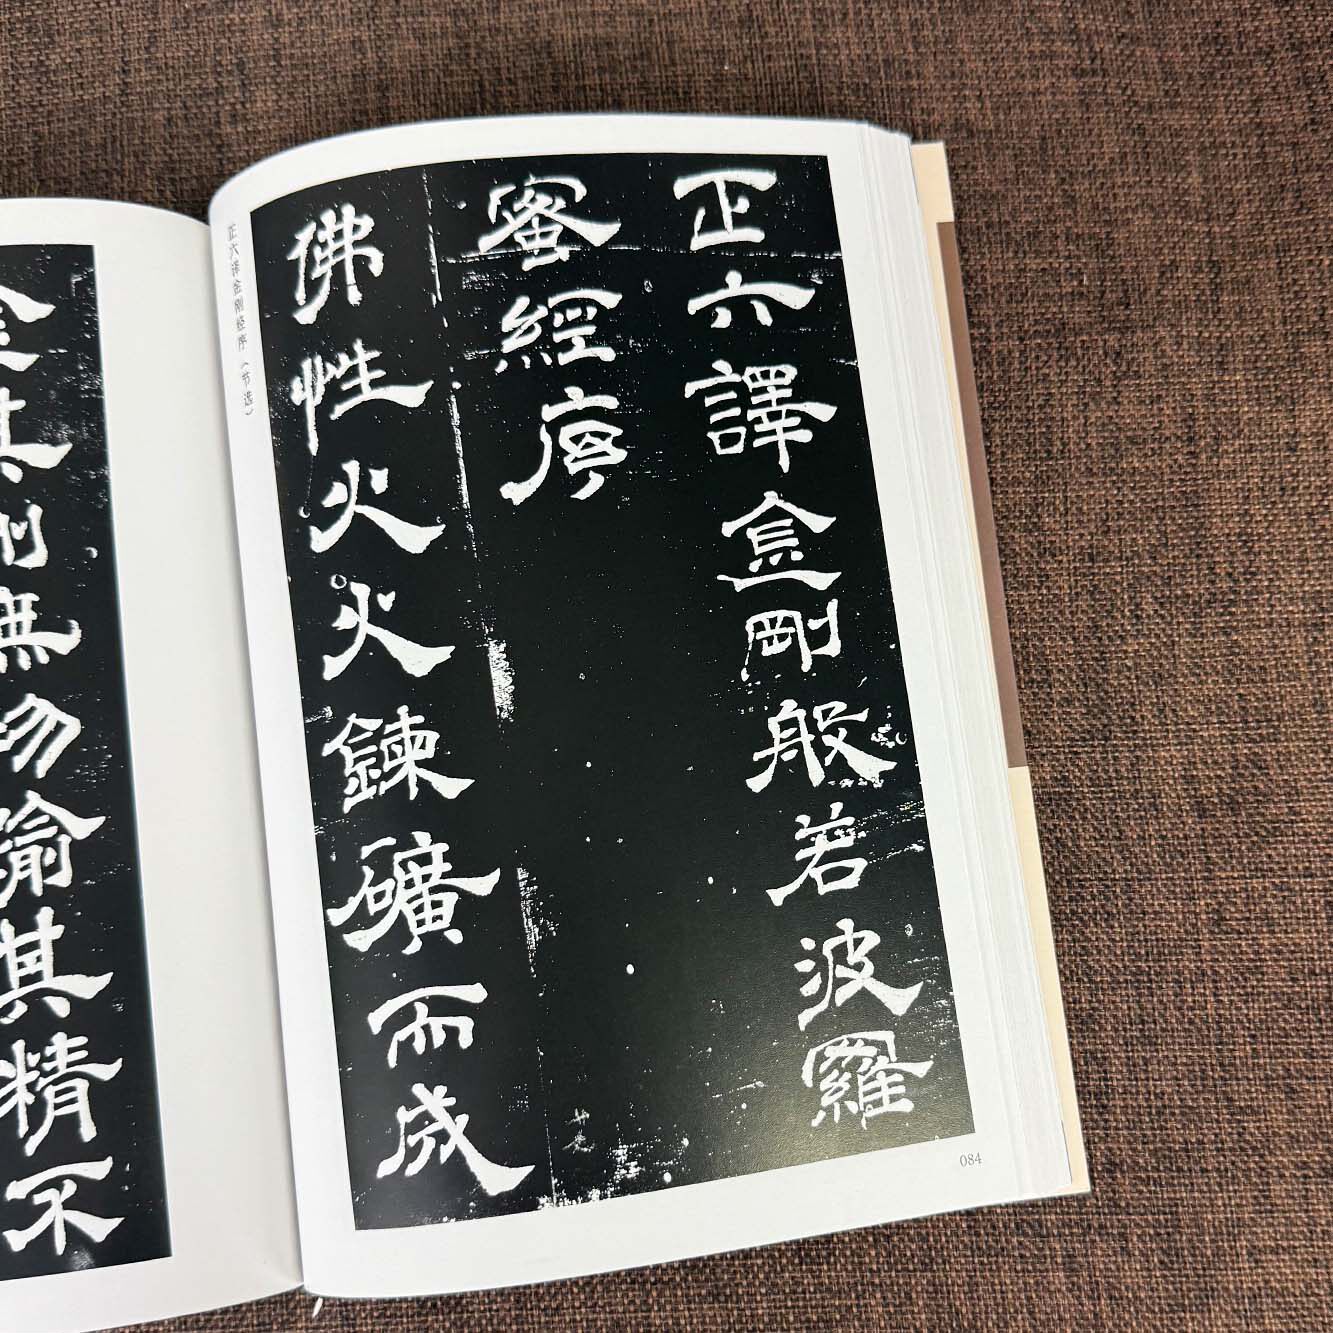 正六譯金剛般若波羅
蜜經序
佛性火火鍊礦而成
正六译金刚经序（节选）
084
其剛無勿喻其精不